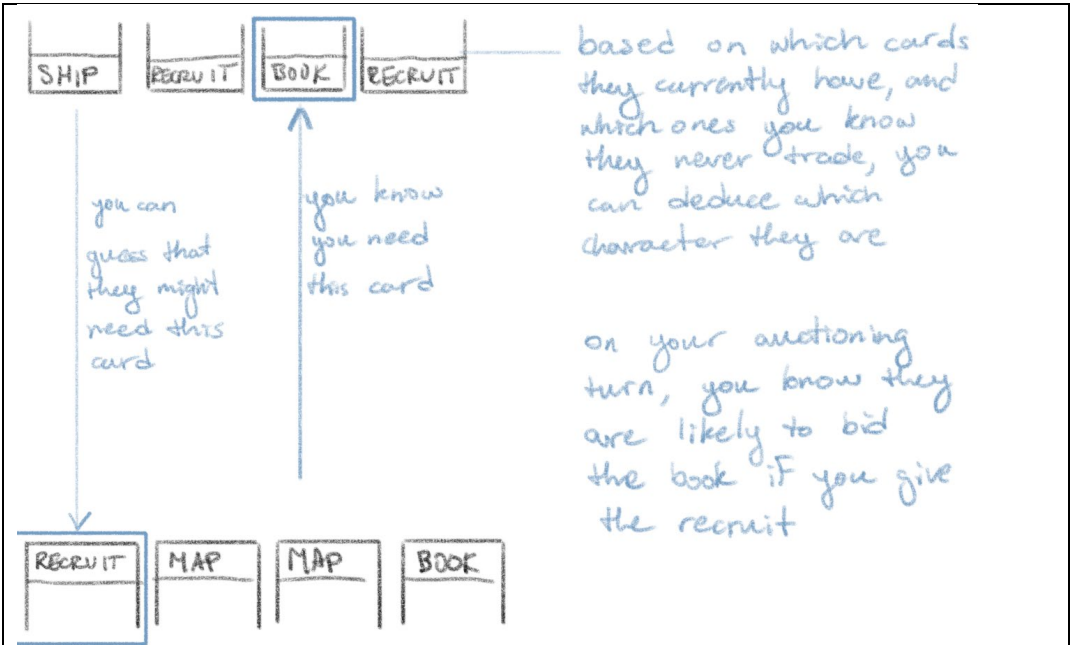 SHIP RECRUIT BOOK RECRUIT
based on which cards
they currently have, and
which ones you know
they never trade, you
can deduce which
character they are
you can
guess that
they might
need this
card
you know
you need
this card
on your auctioning
turn, you know they
are likely to bid
the book if you give
the recruit
RECRUIT MAP MAP BOOK